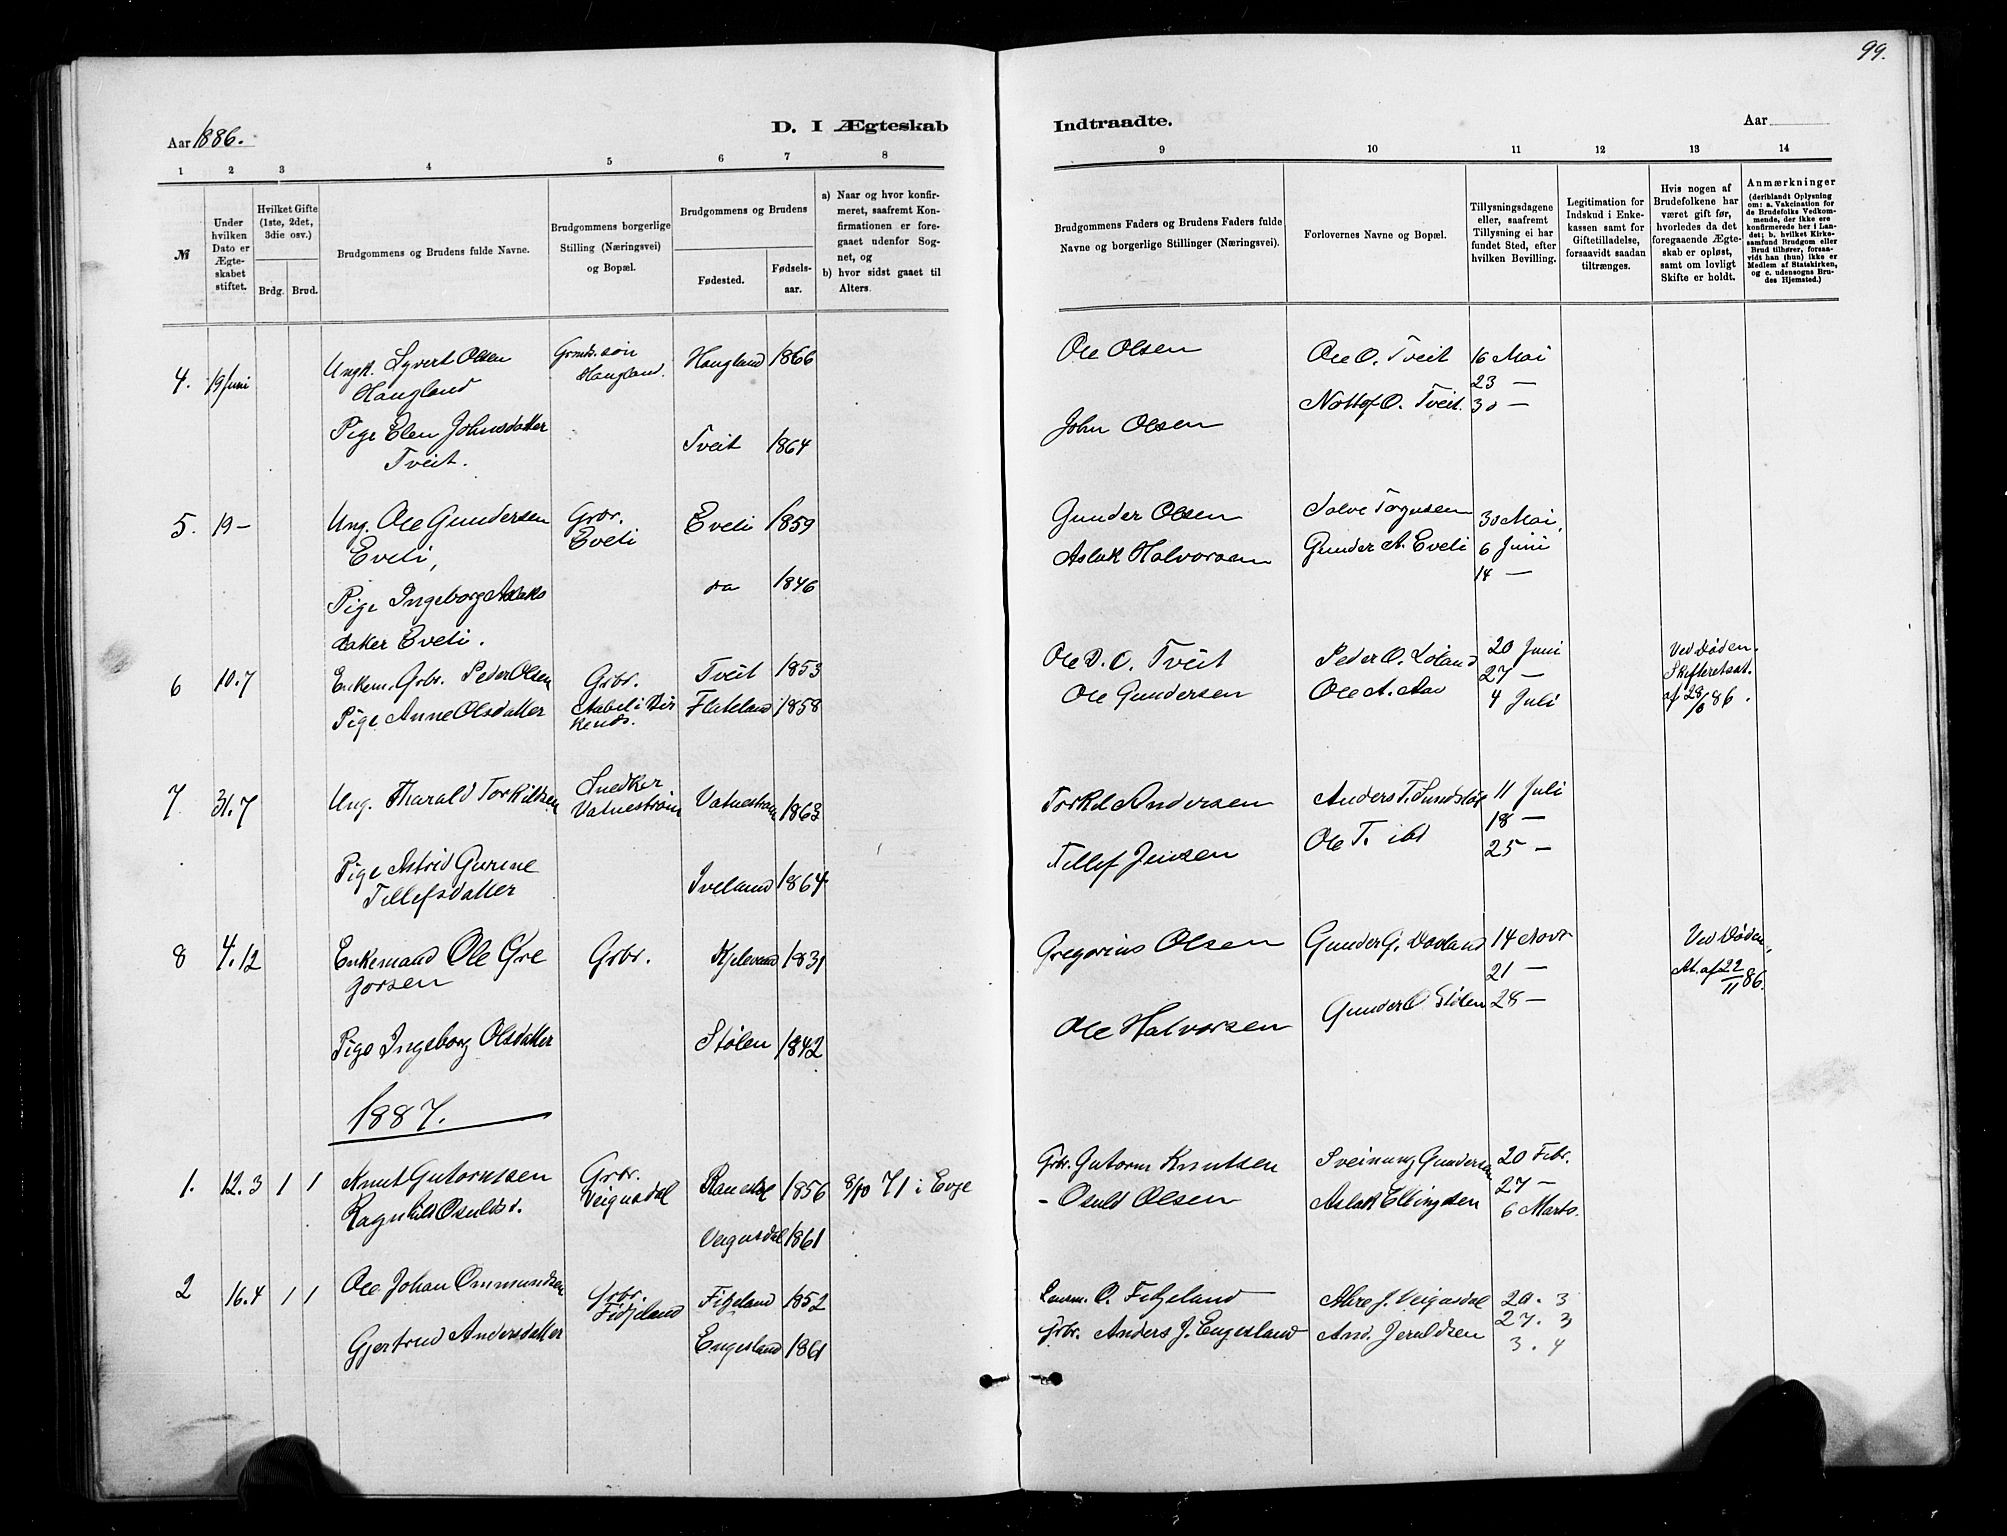 99.
Aar 1886.
D. I Ægteskab
Indtraadte.
Aar
1 2 3 4 5 6 7 8
9 10 11 12 13 14
№
Under hvilken Dato er Ægteskabet stiftet.
Hvilket Gifte (1ste, 2det, 3die osv.)
Brdg. Brud.
Brudgommens og Brudens fulde Navne.
Brudgommens borgerlige Stilling (Næringsvei) og Bopæl.
Brudgommens og Brudens
Fødested.
Fødselsaar.
a) Naar og hvor konfirmeret, saafremt Konfirmationen er foregaaet udenfor Sognet, og
b) hvor sidst gaaet til Alters.
Brudgommens Faders og Brudens Faders fulde Navne og borgerlige Stillinger (Næringsvei).
Forlovernes Navne og Bopæl.
Tillysningsdagene eller, saafremt Tillysning ei har fundet Sted, efter hvilken Bevilling.
Legitimation for Indskud i Enkekassen samt for Giftetilladelse, forsaavidt saadan tiltrænges.
Hvis nogen af Brudefolkene har været gift før, hvorledes da det foregaaende Ægteskab er opløst, samt om lovligt Skifte er holdt.
Anmærkninger (deriblandt Oplysning om: a. Vakcination for de Brudefolks Vedkommende, der ikke ere konfirmerede her i Landet; b. hvilket Kirkesamfund Brudgom eller Brud tilhører, forsaavidt han (hun) ikke er Medlem af Statskirken, og c. udensogns Brudes Hjemsted.)
4. 19 Juni Ungk. Syvert Olsen Haugland
Grmds. søn Haugland. Haugland 1866
Ole Olsen Ole O. Tveit 16 Mai
23 —
Pige Elen Johnsdatter Tveit.
Tveit 1864
John Olsen O. Tveit. 30 —
5. 19 — Ung. Ole Gundersen Eveli,
Grbr. Eveli Eveli 1859
Gunder Olsen Salve Torgusen 30 Mai,
Pige Ingeborg Aslaks
datter Eveli.
do 1846
Aslak Halvorsen Gunder A. Eveli 6 Juni
14 —
6 10.7 Enkem. Grbr. Peder Olsen
Grbr. Tveit 1853
Ole D. O. Tveit Peder O. Loland 20 Juni
27 —
Ved Døden.
Skifteretsat.
af 28/6 86.
Pige Anne Olsdatter
Flateland 1858
Ole Gundersen Ole A. Aas 4 Juli
7 31.7 Ung. Tharald Torkildsen
Snedker Vatnestrøm Vatnestrøm 1863
Torkel Andersen Anders T. 11 Juli
18 —
Pige Astrid Gurine
Tillefsdatter
Iveland 1864
Tillef Jensen Ole T. ibd 25 —
8 4.12 Enkemand Ole Gre
gorsen
Grbr. Kjelevand 1831
Gregorius Olsen Gunder G. 14 Novr
21 —
Ved Døden,
At. af 22/11 86.
Pige Ingeborg Olsdatter
Stølen 1842
Ole Halvorsen Gunder O. Stølen 28 —
1887.
1. 12.3 1 1 Knut Gutormsen
Grbr. Veigusdal 1856 8/10 71 i Evje
Grbr. Gutorm Knutsen Sveinung Gundersen 20 Febr.
27 —
Ragnhild Osuldsd.
Veigusdal 1861
- Osuld Olsen Aslak Ellingsen 6 Marts.
2 16.4 1 1 Ole Johan Ommundsen
Grbr. Fidjeland Fidjeland 1852
O. Fidjeland J. Veigusdal 20. 3
27. 3
Gjertrud Andersdatter
Engesland 1861
Grbr. Anders J. Engesland And. Jeruldsen 3. 4